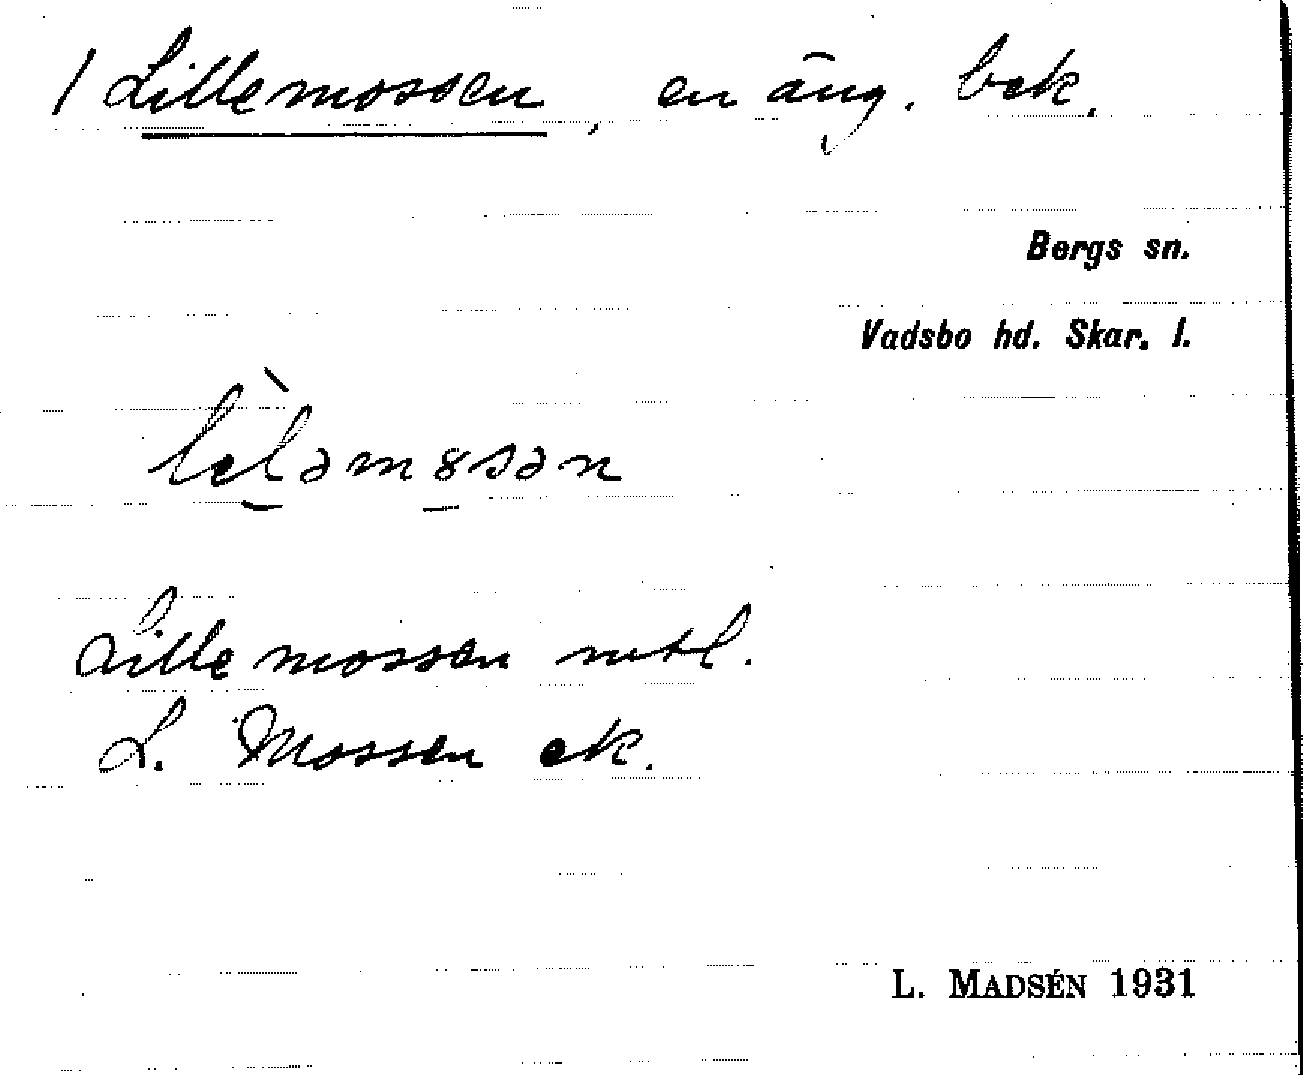 / Lillemossen, en äng. bek.
Bergs sn.
Vadsbo hd. Skar. l.
Lillemossen mtl.
L. Mossen ek.
L. MADSÉN 1931